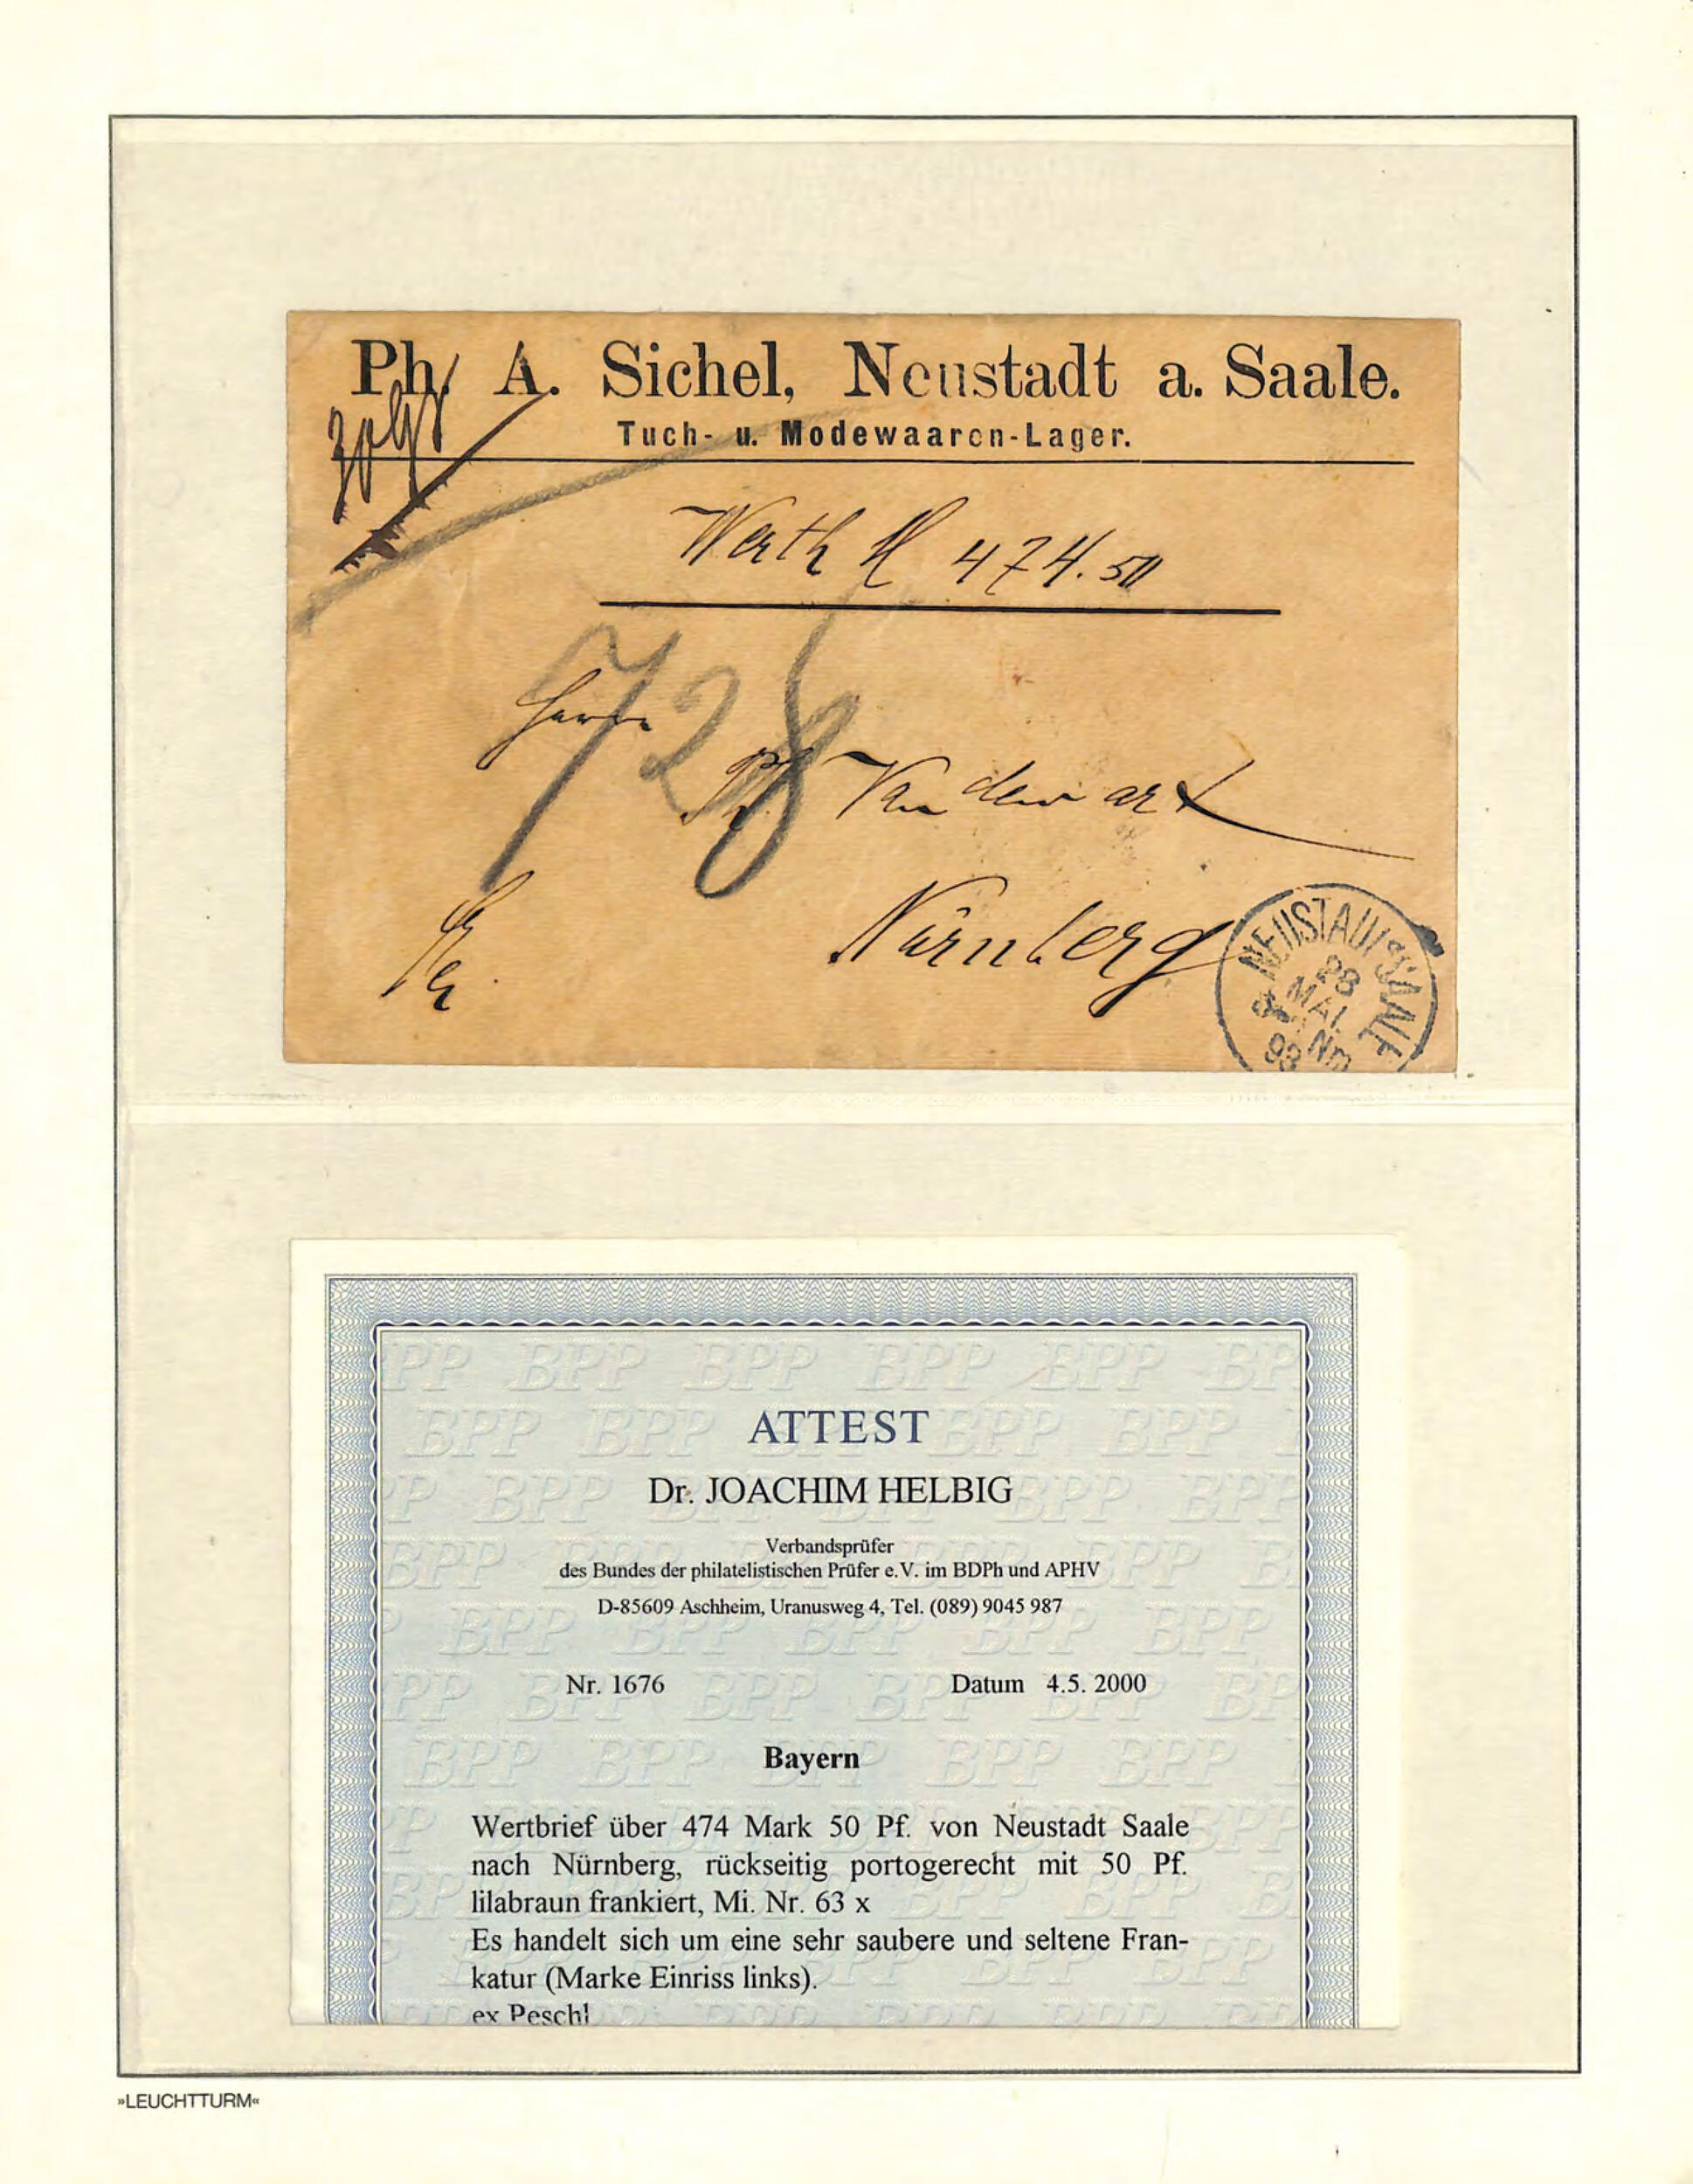 Ph. A. Sichel, Neustadt a. Saale.
Tuch- u. Modewaaren-Lager.
Werth M 474.50
728
Herrn
Nürnberg
NEUSTADT SAALE
28
MAI
Nm
93
ATTEST
Dr. JOACHIM HELBIG
Verbandsprüfer
des Bundes der philatelistischen Prüfer e.V. im BDPh und APHV
D-85609 Aschheim, Uranusweg 4, Tel. (089) 9045 987
Nr. 1676 Datum 4.5. 2000
Bayern
Wertbrief über 474 Mark 50 Pf. von Neustadt Saale
nach Nürnberg, rückseitig portogerecht mit 50 Pf.
lilabraun frankiert, Mi. Nr. 63 x
Es handelt sich um eine sehr saubere und seltene Fran-
katur (Marke Einriss links).
ex Peschl
»LEUCHTTURM«